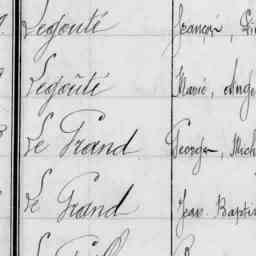 Legoûté François,
Legoûté Marie, Ange
Le Grand Georges, Mich
Le Grand Jean Baptis
Le